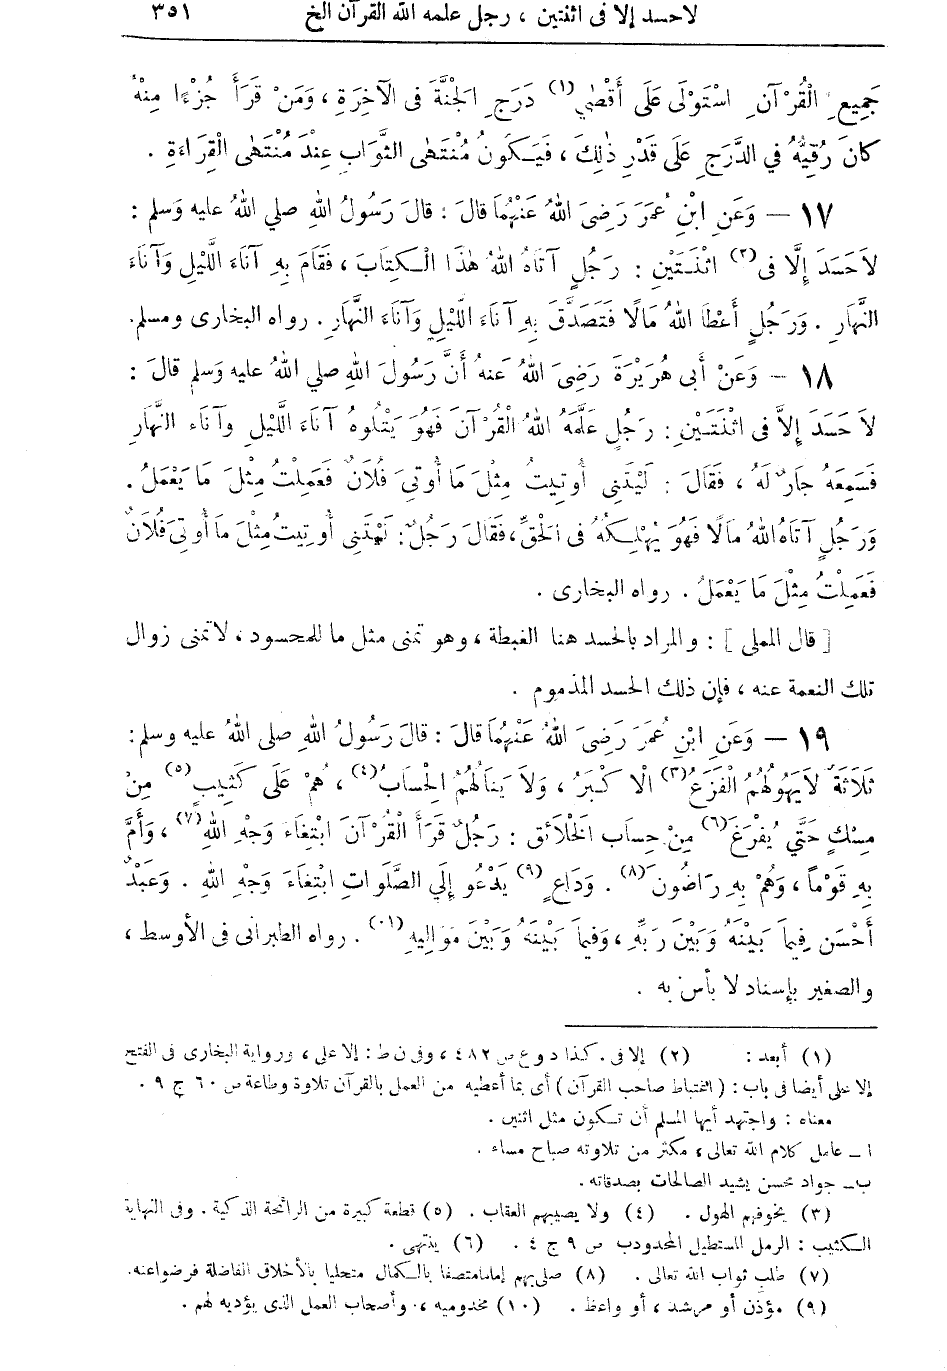 لاحسد إلا فى اثنتين ، رجل علمه الله القرآن الخ ٣٥١
جَمِيعِ الْقُرْآنِ اسْتَوْلَى عَلَى أَقْصٰى (١) دَرَجِ الْجَنَّةِ فى الْآخِرَةِ ، وَمَنْ قَرَأَ جُزْءًا مِنْهُ
كانَ رُقِيُّهُ فِي الدَّرَجِ عَلَى قَدْرِ ذٰلِكَ ، فَيَكُونُ مُنْتَهٰى الثَّوَابِ عِنْدَ مُنْتَهٰى الْقِرَاءَةِ .
١٧ – وَعَنِ ابْنِ عُمَرَ رَضِىَ اللهُ عَنْهُمَا قالَ : قالَ رَسُولُ اللهِ صلي اللهُ عليه وَسلم :
لاَ حَسَدَ إِلَّا فى (٢) اثْنَتَيْنِ : رَجُلٍ آتَاهُ اللهُ هٰذَا الْكِتَابَ ، فَقَامَ بِهِ آنَاءَ اللَّيْلِ وَآنَاءَ
النَّهَارِ . وَرَجُلٍ أَعْطَاهُ اللهُ مَالًا فَتَصَدَّقَ بِهِ آنَاءَ اللَّيْلِ وَآنَاءَ النَّهَارِ . رواه البخارى ومسلم.
١٨ – وَعَنْ أَبى هُرَيْرَةَ رَضِىَ اللهُ عَنهُ أَنَّ رَسُولَ اللهِ صلي اللهُ عليه وَسلم قالَ :
لاَ حَسَدَ إِلاَّ فى اثْنَتَيْنِ : رَجُلٍ عَلَّمَهُ اللهُ الْقُرْآنَ فَهُوَ يَتْلُوهُ آنَاءَ اللَّيْلِ وآنَاءَ النَّهَارِ
فَسَمِعَهُ جَارٌ لَهُ ، فَقَالَ : لَيْتَنِى أُوتِيتُ مِثْلَ مَا أُوتِىَ فُلَانٌ فَعَمِلْتُ مِثْلَ مَا يَعْمَلُ .
وَرَجُلٍ آتَاهُ اللهُ مَالًا فَهُوَ يُهْلِكُهُ فى الْحَقِّ، فَقَالَ رَجُلٌ : لَيْتَنِى أُوتِيتُ مِثْلَ مَا أُوتِىَ فُلَانٌ
فَعَمِلْتُ مِثْلَ مَا يَعْمَلُ . رواه البخارى .
[ قال المملى ] : والمراد بالحسد هنا الغبطة ، وهو تمنى مثل ما للمحسود ، لا تمنى زوال
تلك النعمة عنه ، فإن ذلك الحسد المذموم .
١٩ – وَعَنِ ابْنِ عُمَرَ رَضِىَ اللهُ عَنْهُمَا قالَ : قالَ رَسُولُ اللهِ صلى اللهُ عليه وسلم :
ثَلَاثَةٌ لاَ يَهُولُهُمُ الْفَزَعُ (٣) الْأَكْبَرُ ، وَلاَ يَنَالُهُمُ الْحِسَابُ (٤) ، هُمْ عَلَى كَثِيبٍ (٥) مِنْ
مِسْكٍ حَتَّي يُفْرَغَ (٦) مِنْ حِسَابِ الْخَلاَئقِ : رَجُلٌ قَرَأَ الْقُرْآنَ ابْتِغَاءَ وَجْهِ اللهِ (٧) ، وَأَمَّ
بِهِ قَوْماً ، وَهُمْ بِهِ رَاضُونَ (٨) . وَدَاعٍ (٩) يَدْعُو إِلَي الصَّلَوَاتِ ابْتِغَاءَ وَجْهِ اللهِ . وَعَبْدٌ
أَحْسَنَ فِيمَا بَيْنَهُ وَبَيْنَ رَبِّهِ ، وَفِيمَا بَيْنَهُ وَبَيْنَ مَوَالِيهِ (١٠) . رواه الطبرانى فى الأوسط ،
والصغير بإسناد لا بأس به .
(١) أبعد : (٢) إلا فى . كذا دوع ص ٤٨٢ ، وفى ن ط : إلا على ، ورواية البخارى فى الفتح
إلا على أيضا فى باب : ( اغتباط صاحب القرآن ) أى بما أعطيه من العمل بالقرآن تلاوة وطاعة ص ٦٠ ج ٩ .
معناه : واجتهد أيها المسلم أن تكون مثل اثنين .
ا – عامل كلام الله تعالى ، مكثر من تلاوته صباح مساء .
ب – جواد محسن يشيد الصالحات بصدقاته .
(٣) يخوفهم الهول . (٤) ولا يصيبهم العقاب . (٥) قطعة كبيرة من الرائحة الذكية . وفى النهاية
الكثيب : الرمل المستطيل المحدودب ص ٩ ج ٤ . (٦) ينتهى .
(٧) طلب ثواب الله تعالى . (٨) صلى بهم إماما متصفا بالكمال متحليا بالأخلاق الفاضلة فرضوا عنه.
(٩) مؤذن أو مرشد ، أو واعظ . (١٠) مخدوميه ، وأصحاب العمل الذى يؤديه لهم .